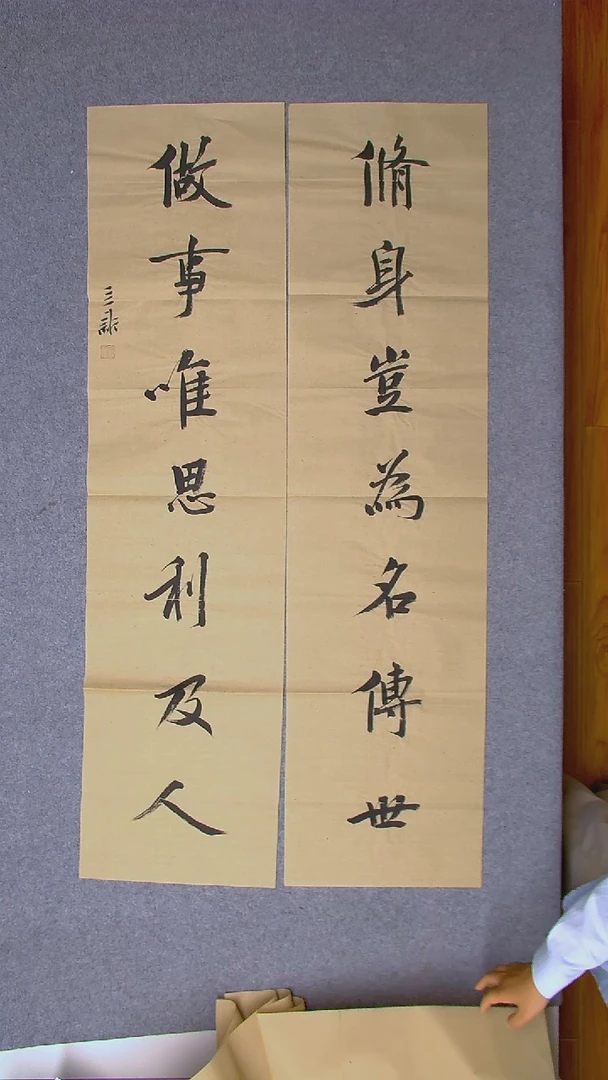 脩身豈為名傳世
做事唯思利及人